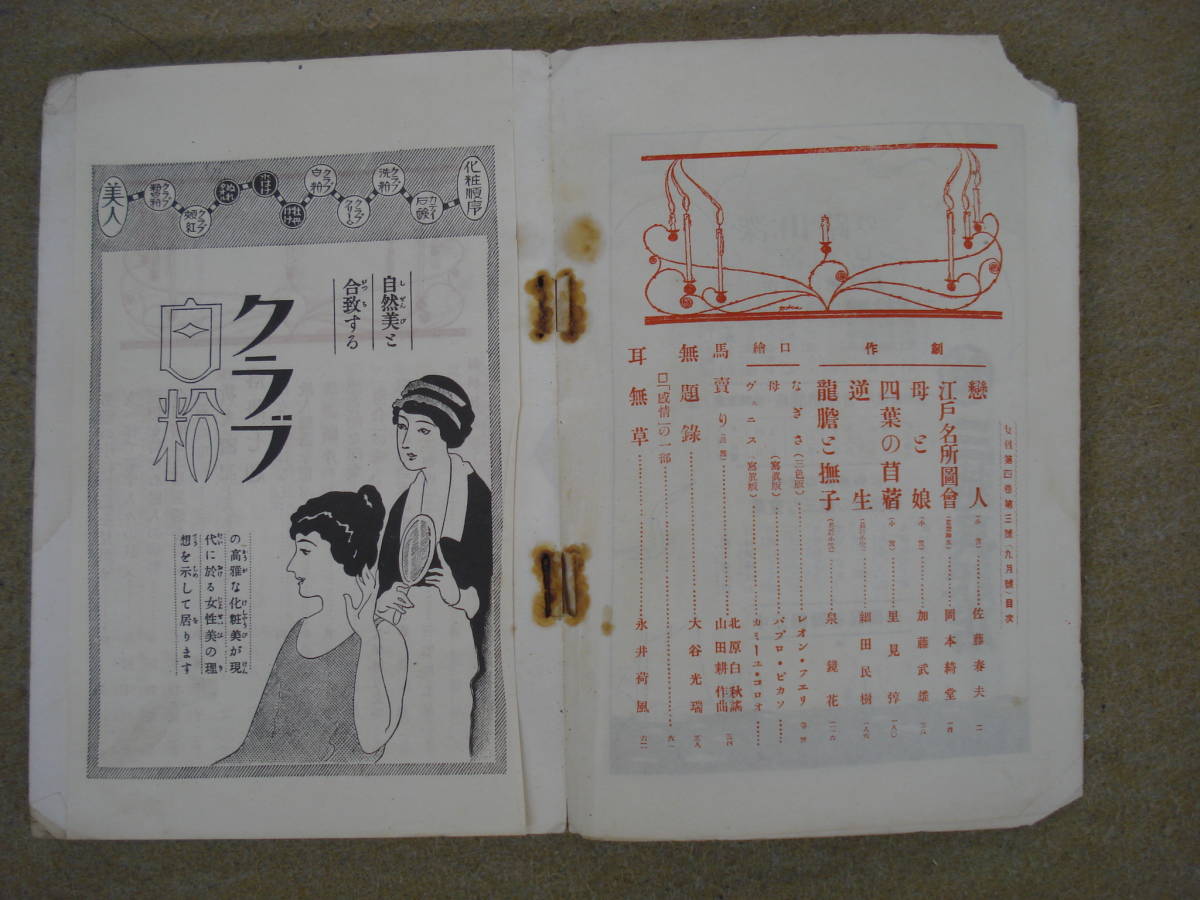 女性第四卷第三號(九月號)目次
創作
戀人(小説)…佐藤春夫
江戸名所圖會…岡本綺堂
母と娘(小説)…加藤武雄
四葉の苜蓿(小説)…里見弴
逆生(長篇小説)…細田民樹
龍膽と撫子(長篇小説)…泉鏡花
口繪
なぎさ(三色版)…レオン・フエリ
母(寫眞版)…パブロ・ピカソ
ヴェニス(寫眞版)…カミーユ・コロオ
馬賣り…北原白秋謠 山田耕作曲
無題錄…大谷光瑞
□「感情」の一部…
耳無草…永井荷風
化粧順序
カテイ石鹸
クラブ洗粉
クラブクリーム
クラブ白粉
クラブ頰紅
美人
自然美と
しぜんび
合致する
がつち
クラブ
白粉
の高雅な化粧美が現
代に於る女性美の理
想を示して居ります